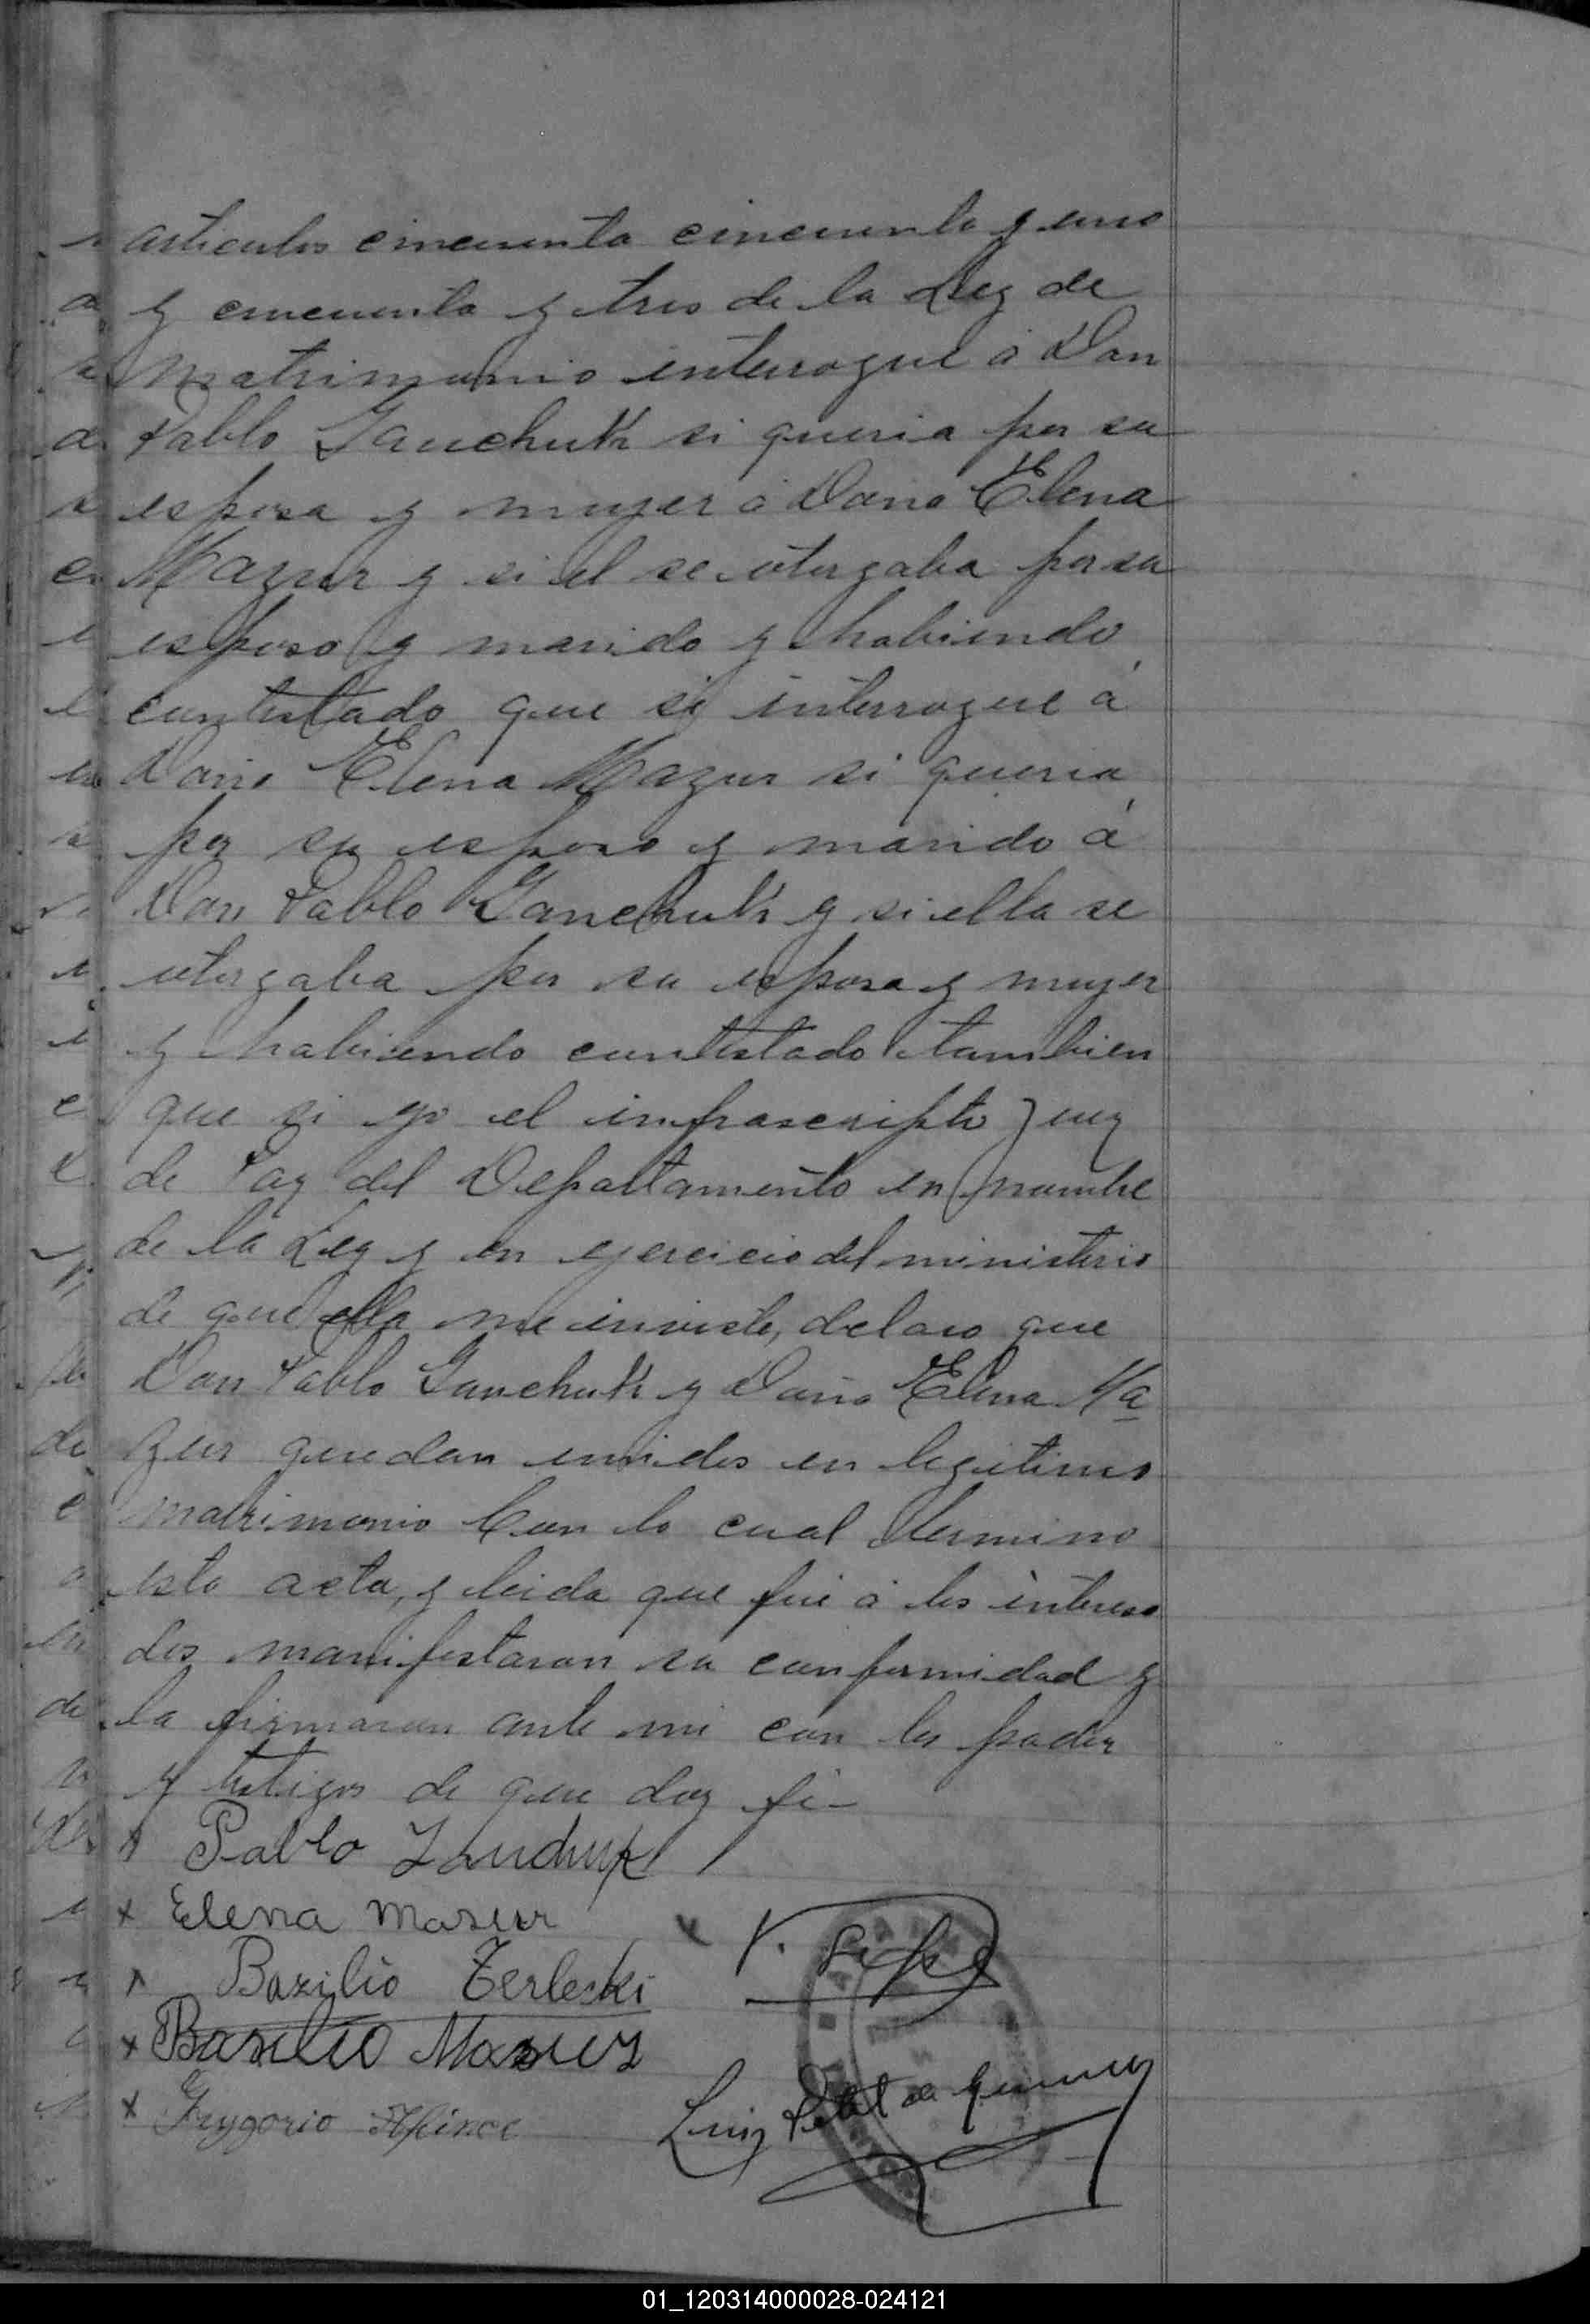 articulos cincuenta cincuenta y uno
y cincuenta y tres de la Ley de
Matrimonio interrogué á Don
Pablo Ganchuk si queria por su
esposa y mujer á Doña Elena
Mazur y si el se otorgaba por su
esposo y marido y habiendo
contestado que si interrogué á
Doña Elena Mazur si queria
por su esposo y marido á
Don Pablo Ganchuk y si ella se
otorgaba por su esposa y mujer
y habiendo contestado tambien
que si yo el infrascripto Juez
de Paz del Departamento en nombre
de la Ley y en ejercicio del ministerio
de que ella me inviste, declaro que
Don Pablo Ganchuk y Doña Elena Ma
zur quedan unidos en legitimo
matrimonio Con lo cual termino
esta acta, y leida que fué á los interesa
dos manifestaron su conformidad y
la firmaron ante mi con los padres
y testigos de que doy fé-
x Pablo
x Elena Masur
x Bazilio Terleski
x Basilio Masur
x Grygorio
Luis Petit de
01_120314000028-024121